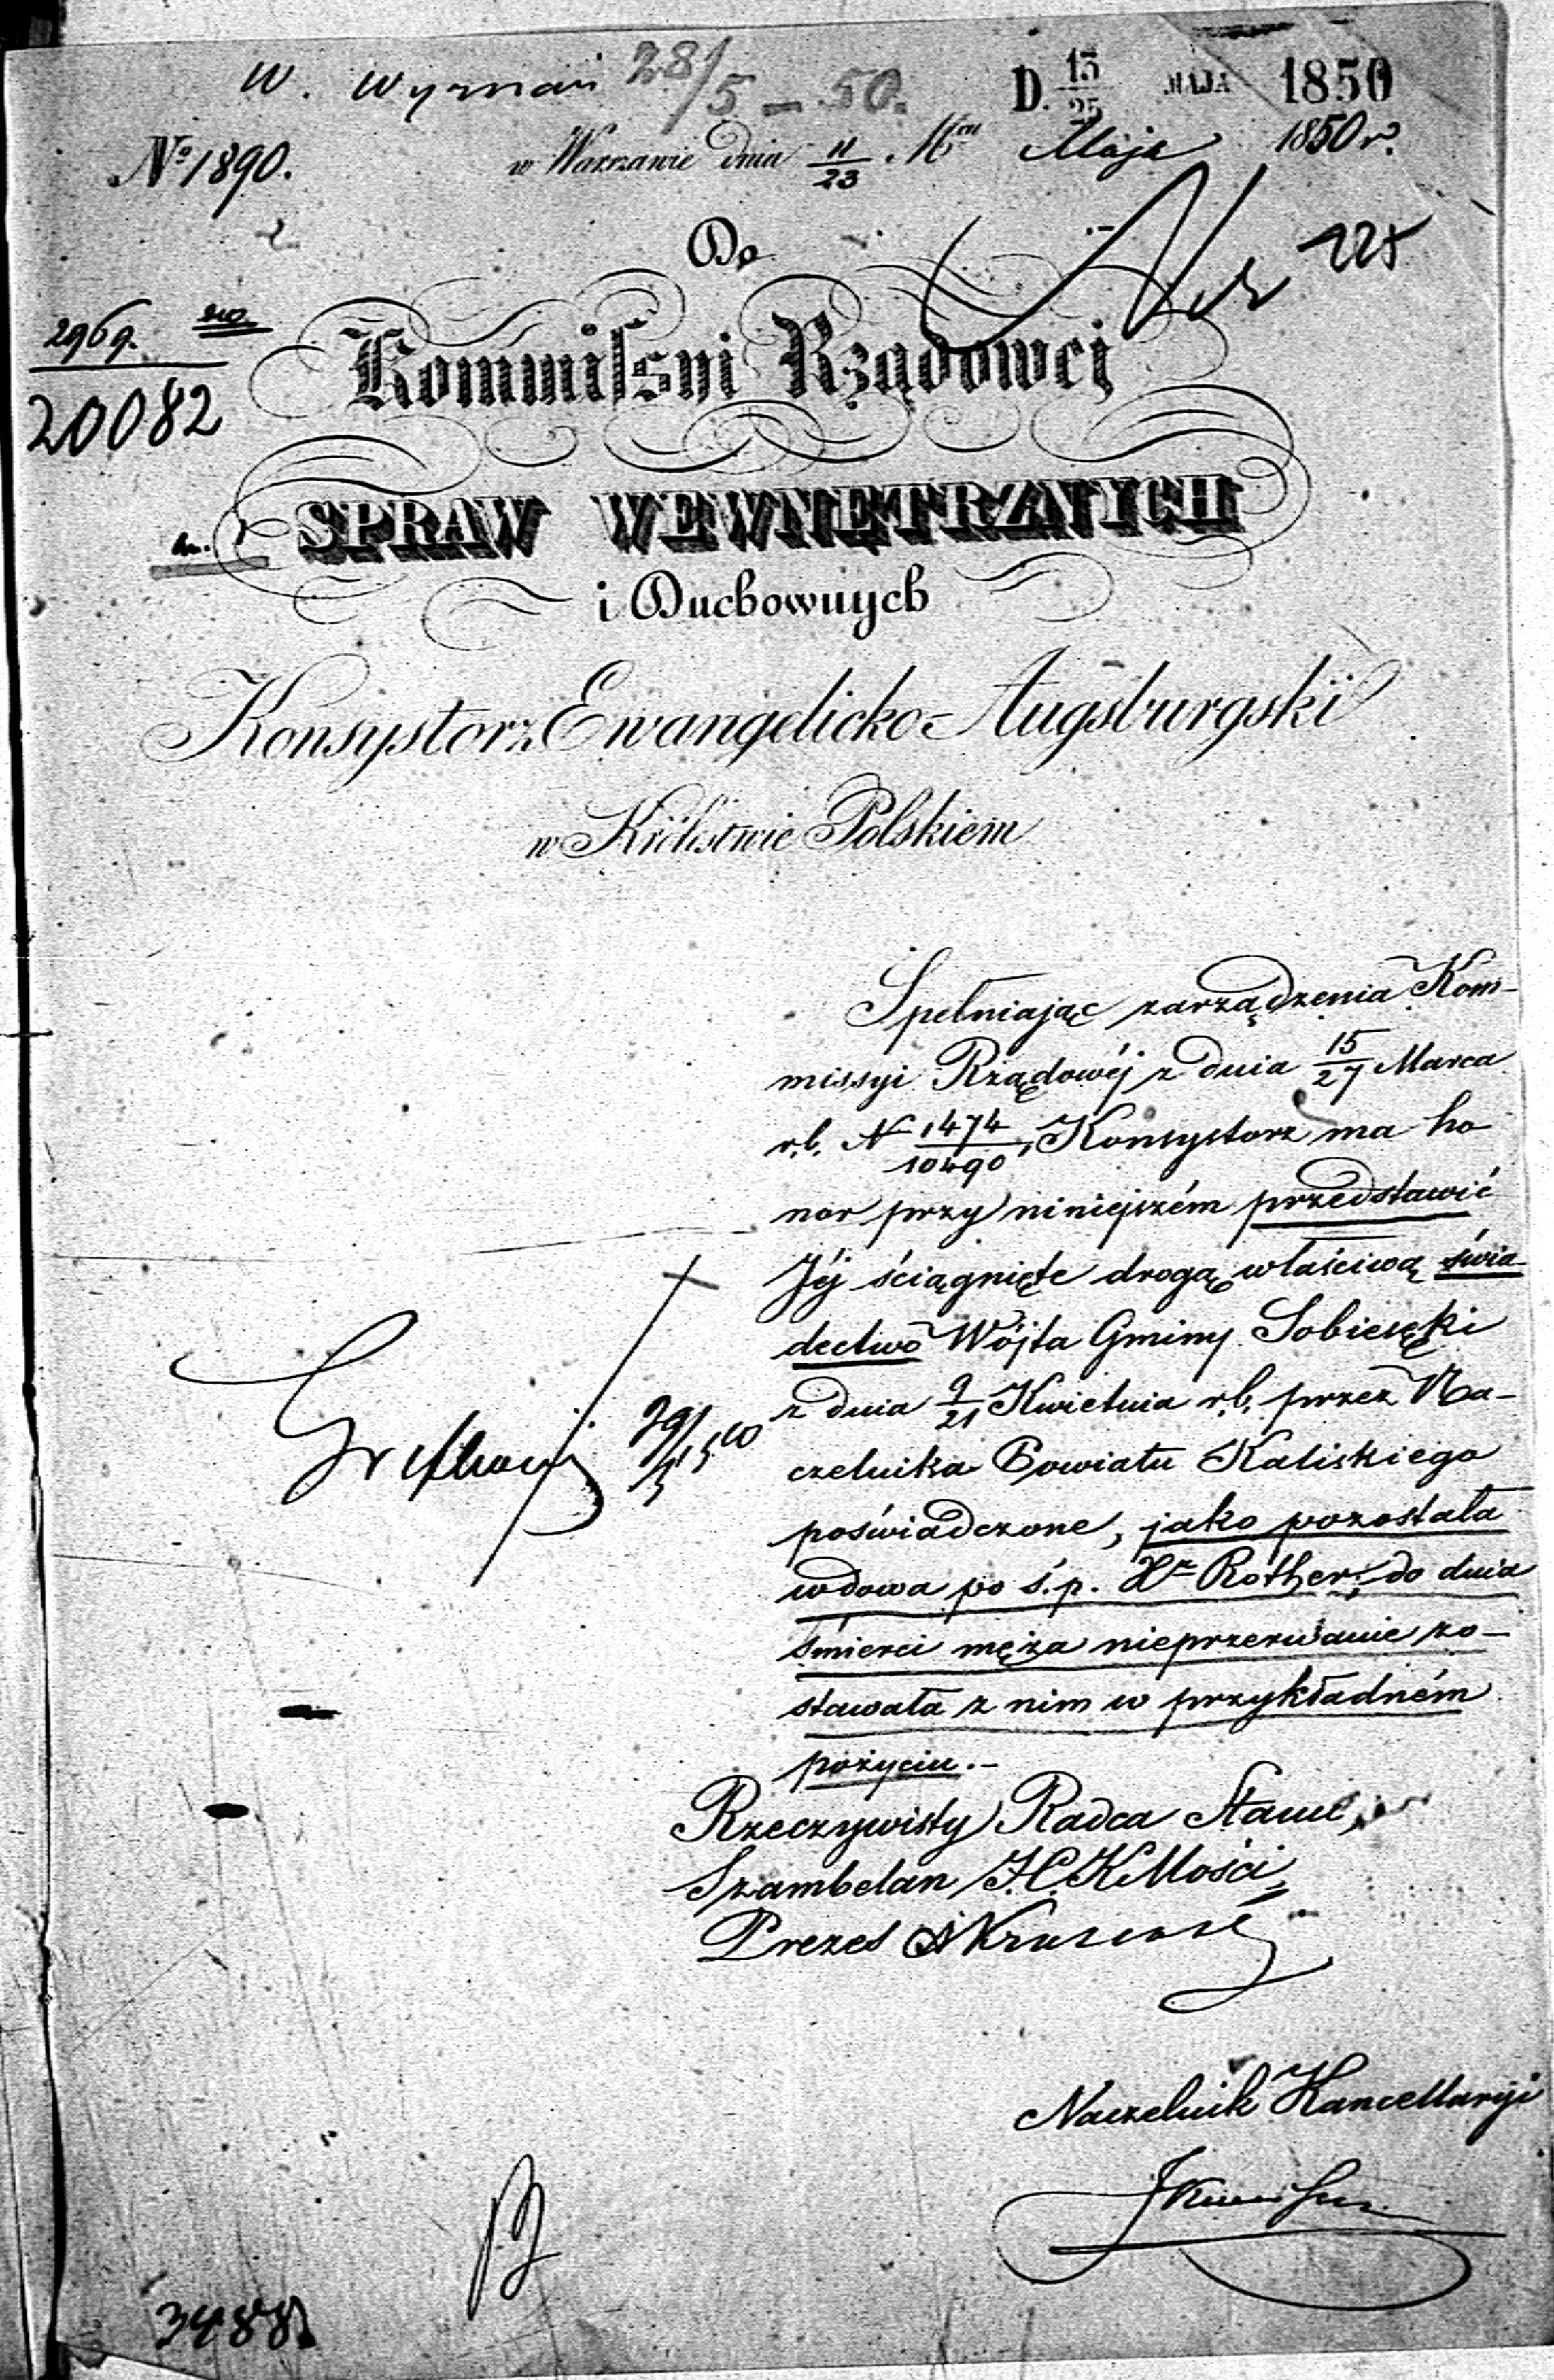 W. Wyznań 28/5 – 50.
D. 13/25 MAJA 1850
No 1890.
w Warszawie dnia 11/23 Mca Maja 1850 r.
Do
2969.
20082
Kommissyi Rządowej
SPRAW WEWNĘTRZNYCH
i Duchownych
Konsystorz Ewangelicko-Augsburgski
w Królestwie Polskiem
Spełniając zarządzenia Kom-
missyi Rządowéj z dnia 15/27 Marca
r.b. N 1474/10490, Konsystorz ma ho
nor przy niniejszém przedstawić
Jéj ściągnięte drogą właściwą świa-
dectwo Wójta Gminy Sobiesęki
z dnia 9/21 Kwietnia r.b. przez Na-
czelnika Powiatu Kaliskiego
poświadczone, jako pozostała
wdowa po ś.p. Xr Rother, do dnia
śmierci męża nieprzerwanie zo-
stawała z nim w przykładném
pożyciu.–
29/5
Rzeczywisty Radca Stanu,
Szambelan J.C.K Mości,
Prezes
Naczelnik Kancellaryi
3488